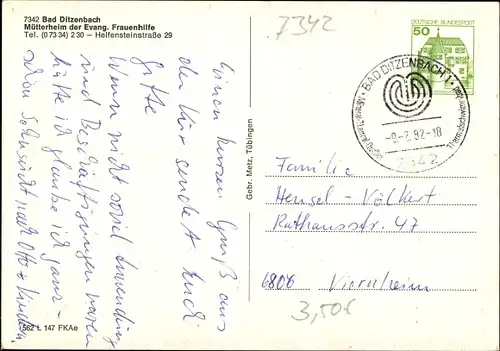 7342 Bad Ditzenbach
Mütterheim der Evang. Frauenhilfe
Tel. (073 34) 2 30 – Helfensteinstraße 29
Einen kurzen Gruß aus
der Kur sendet Euch
Gitte
Wenn nicht soviel Anwendung
und Beschäftigungen wären
hätte ich glaube ich ganz
schön Sehnsucht nach Otto + Kindern.
562 L 147 FKAe
Gebr. Metz, Tübingen
7342
DEUTSCHE BUNDESPOST
50
BAD DITZENBACH 1
-9-2.82-18
7342
Familie
Hensel - Volkert
Rathausstr. 47
6806 Viernheim
3,50€